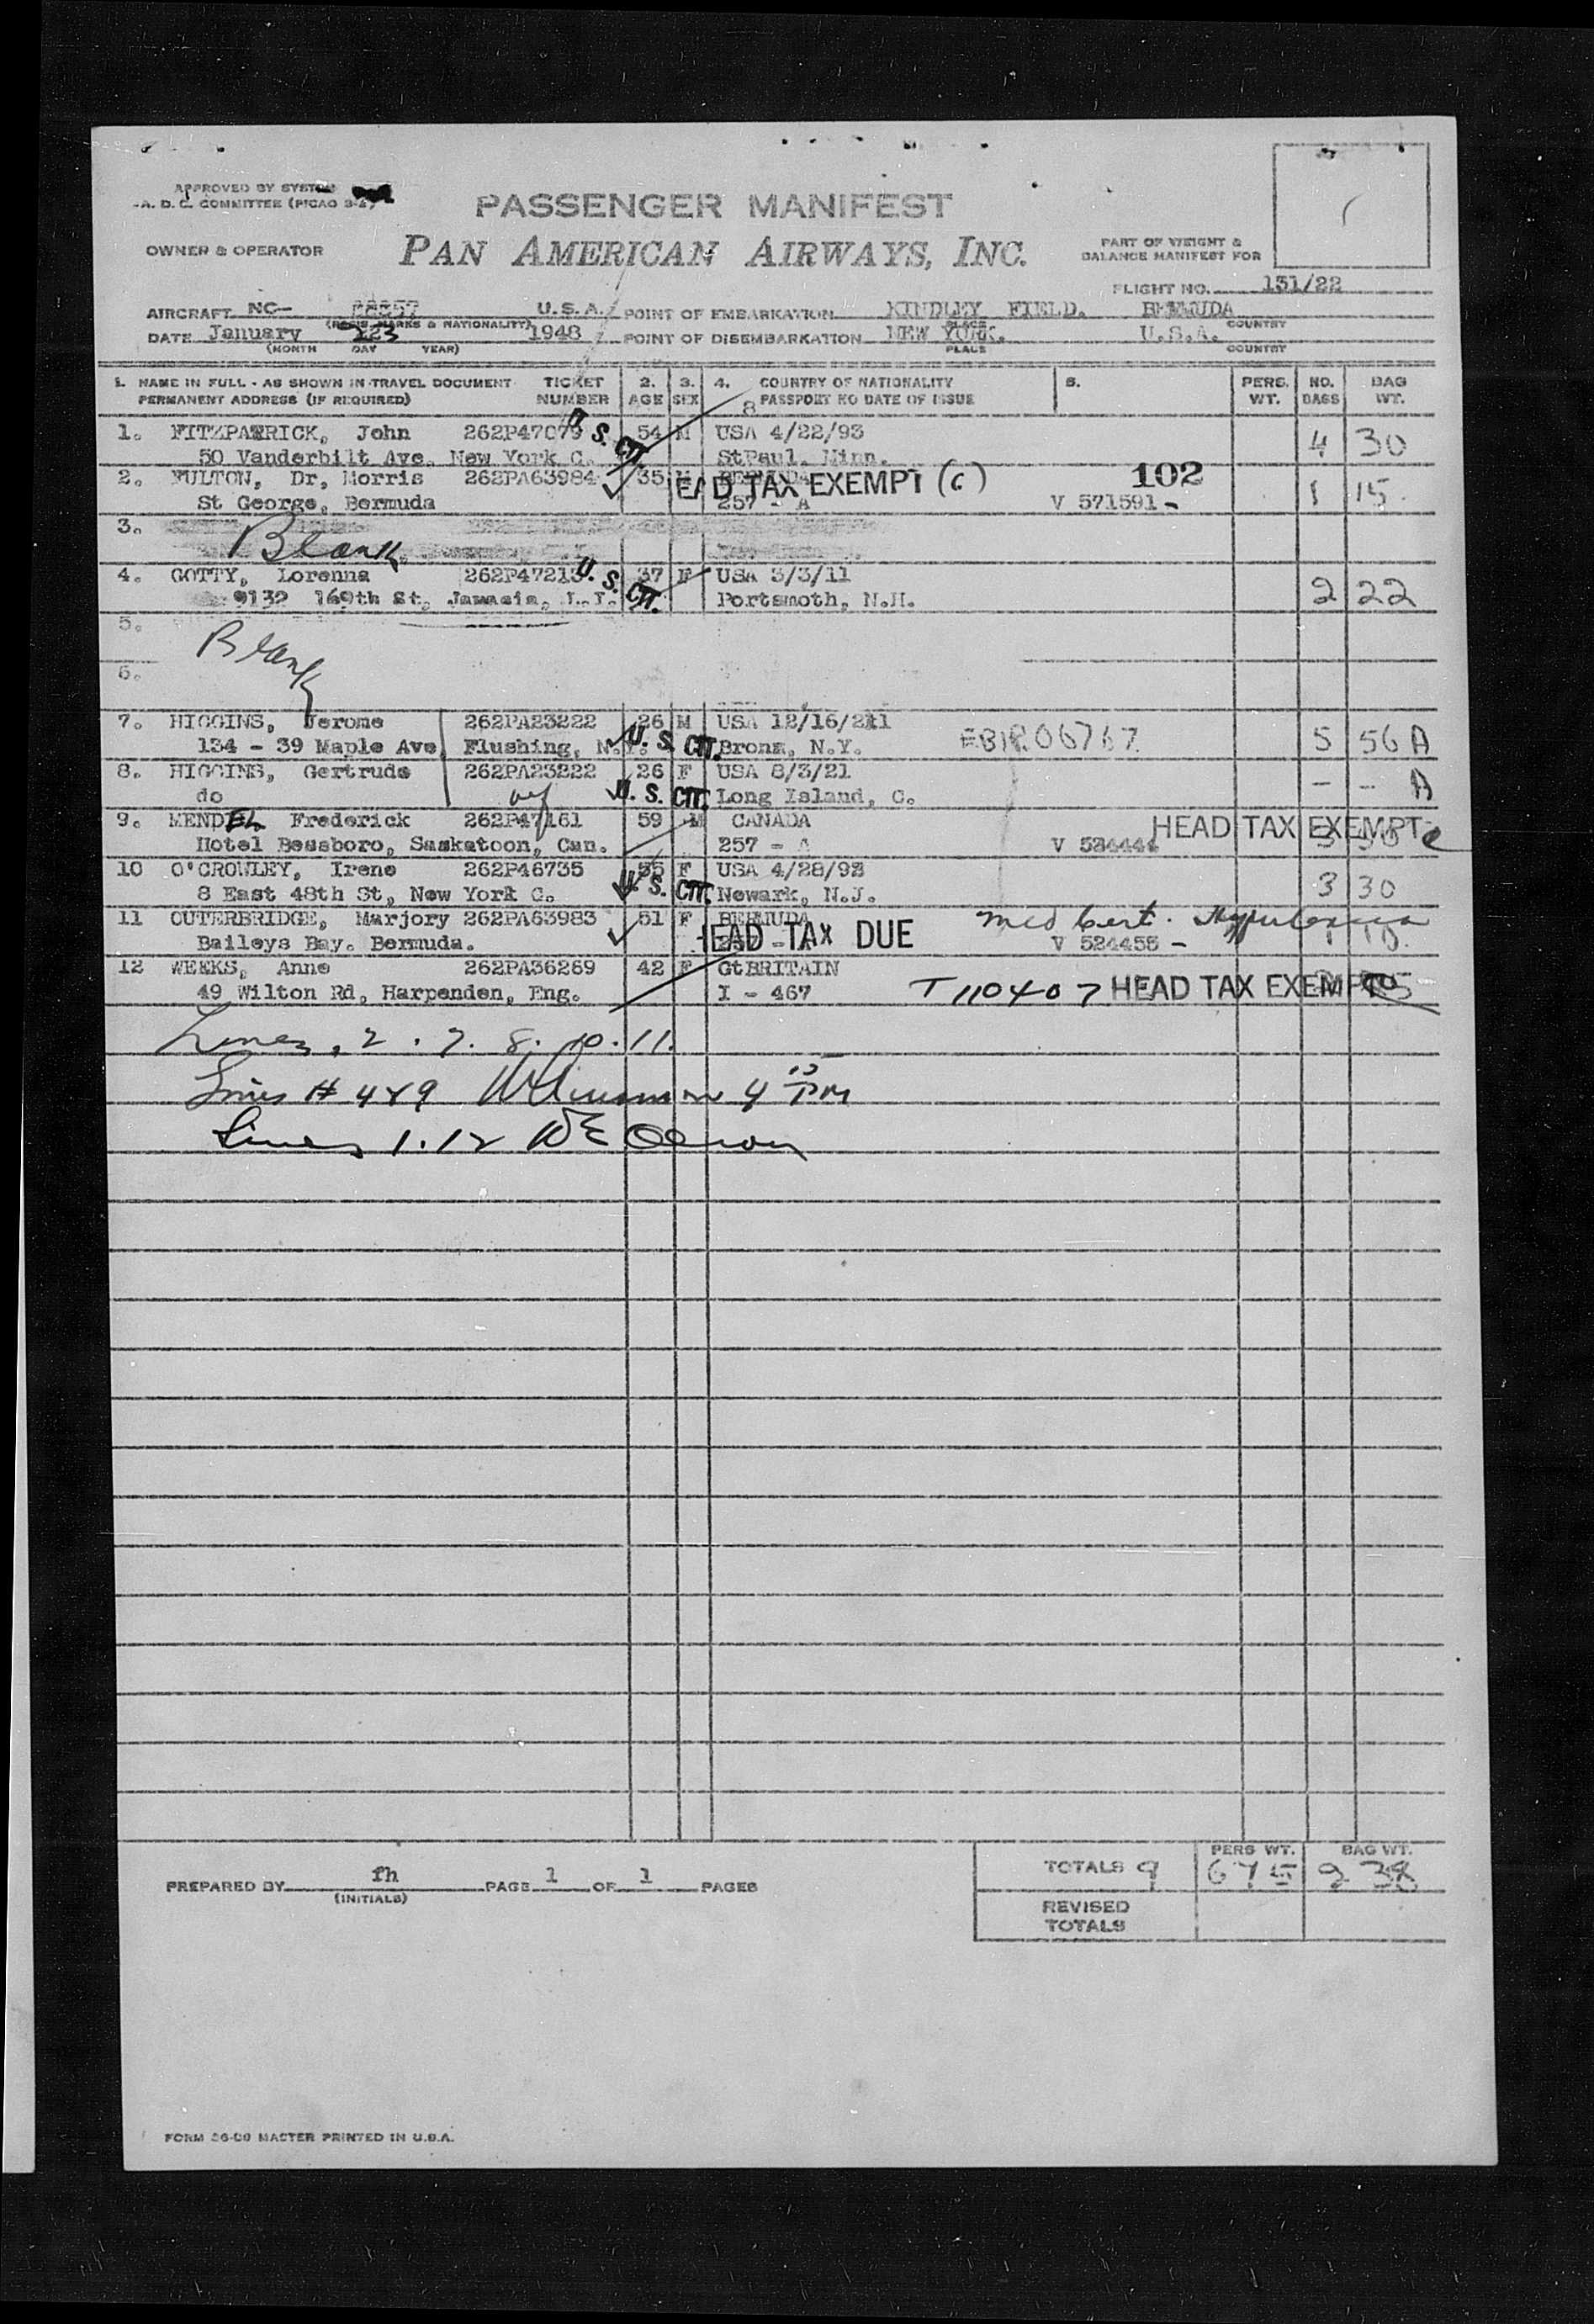 APPROVED BY SYSTEM
A. D. C. COMMITTEE (PICAO 3-2)
PASSENGER MANIFEST
OWNER & OPERATOR PAN AMERICAN AIRWAYS, INC.
PART OF WEIGHT &
BALANCE MANIFEST FOR
FLIGHT NO. 151/22
AIRCRAFT NC- U.S.A. POINT OF EMBARKATION KINDLEY FIELD. BERMUDA
(REGIS. MARKS & NATIONALITY) PLACE COUNTRY
DATE January 1948 POINT OF DISEMBARKATION NEW YORK. U.S.A.
(MONTH DAY YEAR) PLACE COUNTRY
1. NAME IN FULL - AS SHOWN IN TRAVEL DOCUMENT TICKET 2. 3. 4. COUNTRY OF NATIONALITY 5. PERS. NO. BAG
PERMANENT ADDRESS (IF REQUIRED) NUMBER AGE SEX PASSPORT NO DATE OF ISSUE WT. BAGS WT.
8
1. FITZPATRICK, John 262P47079 U. S. CIT. 54 M USA 4/22/93 4 30
50 Vanderbilt Ave. New York C. StPaul, Minn.
2. FULTON, Dr, Morris 262PA63984 35 M BERMUDA HEAD TAX EXEMPT (C) 102 1 15
St George, Bermuda 257 - A V 571591 -
3.
Blank
4. GOTTY, Lorenna 262P47213 U. S. CIT. 37 F USA 3/3/11 2 22
9132 169th St, Jamacia, L.I. Portsmoth, N.H.
5.
Blank
6.
7. HIGGINS, Jerome 262PA23222 26 M USA 12/16/21 5 56 A
134 - 39 Maple Ave, Flushing, N.Y. U. S. CIT. Bronx, N.Y.
8. HIGGINS, Gertrude 262PA23222 26 F USA 8/3/21 - - A
do U. S. CIT. Long Island, C.
9. MENDEL Frederick 262P47161 59 M CANADA HEAD TAX EXEMPT c
Hotel Bessboro, Saskatoon, Can. 257 - A
10 O'CROWLEY, Irene 262P46735 55 F USA 4/28/92 3 30
8 East 48th St, New York C. U. S. CIT. Newark, N.J.
11 OUTERBRIDGE, Marjory 262PA63983 51 F BERMUDA med cert.
Baileys Bay. Bermuda. HEAD TAX DUE V 524455 -
12 WEEKS, Anne 262PA36269 42 F GtBRITAIN
49 Wilton Rd, Harpenden, Eng. I - 467 T 110407 HEAD TAX EXEMPT
Lines, 2. 7. 8. 10. 11.
Lines # 4 & 9 4 15 PM
Lines 1. 12
PREPARED BY fh PAGE 1 OF 1 PAGES
(INITIALS)
PERS WT. BAG WT.
TOTALS 9 675 238
REVISED
TOTALS
FORM 26-00 MASTER PRINTED IN U.S.A.